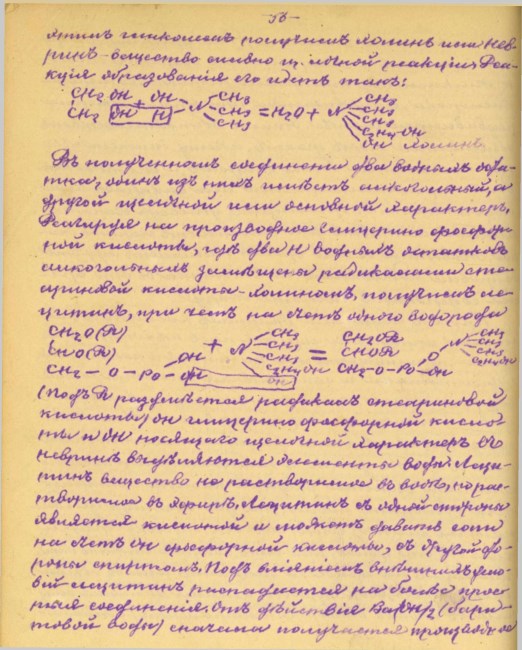 -56-
этимъ гликолемъ получимъ холинъ или нев-
ринъ-вещество сильно щелочной реакціи. Реа-
кція образованія его идетъ такъ:
CH2 OH + OH – N CH3 CH3 CH3 = H2O + N CH3 CH3 CH3 C2H4OH OH
CH2 OH H
холинъ
Въ полученномъ соединеніи два водныхъ оста-
тка, одинъ изъ нихъ имѣетъ алкогольный, а
другой щелочной или основной характеръ.
Реагируя на производное глицерино фосфор-
ной кислоты, гдѣ два H водныхъ остатковъ
алкогольныхъ замѣщены радикалами сте-
ариновой кислоты-холиномъ, получимъ ле-
цитинъ, при чемъ на счетъ одного водорода
CH2 O(R) CH3 CH2OR CH3
CHO(R) + N CH3 CH3 = CHOR O N CH3 CH3
CH2 – O – PO OH OH C2H4OH OH CH2-O-PO OH C2H4OH
(подъ R разумѣется радикалъ стеариновой
кислоты) OH глицерино фосфорной кисло-
ты и OH носящаго щелочной характеръ въ
невринѣ выдѣляются элементы воды. Леци-
тинъ вещество не растворимое въ водѣ, но рас-
творимое въ эфирѣ. Лецитинъ съ одной стороны
является кислотой и можетъ давать соли
на счетъ OH фосфорной кислоты, съ другой сто-
роны спиртомъ. Подъ вліяніемъ внѣшнихъ усло-
вій лецитинъ распадается на болѣе прос-
тыя соединенія. Отъ дѣйствія Ba(OH)2 (бари-
товой воды) сначала получается